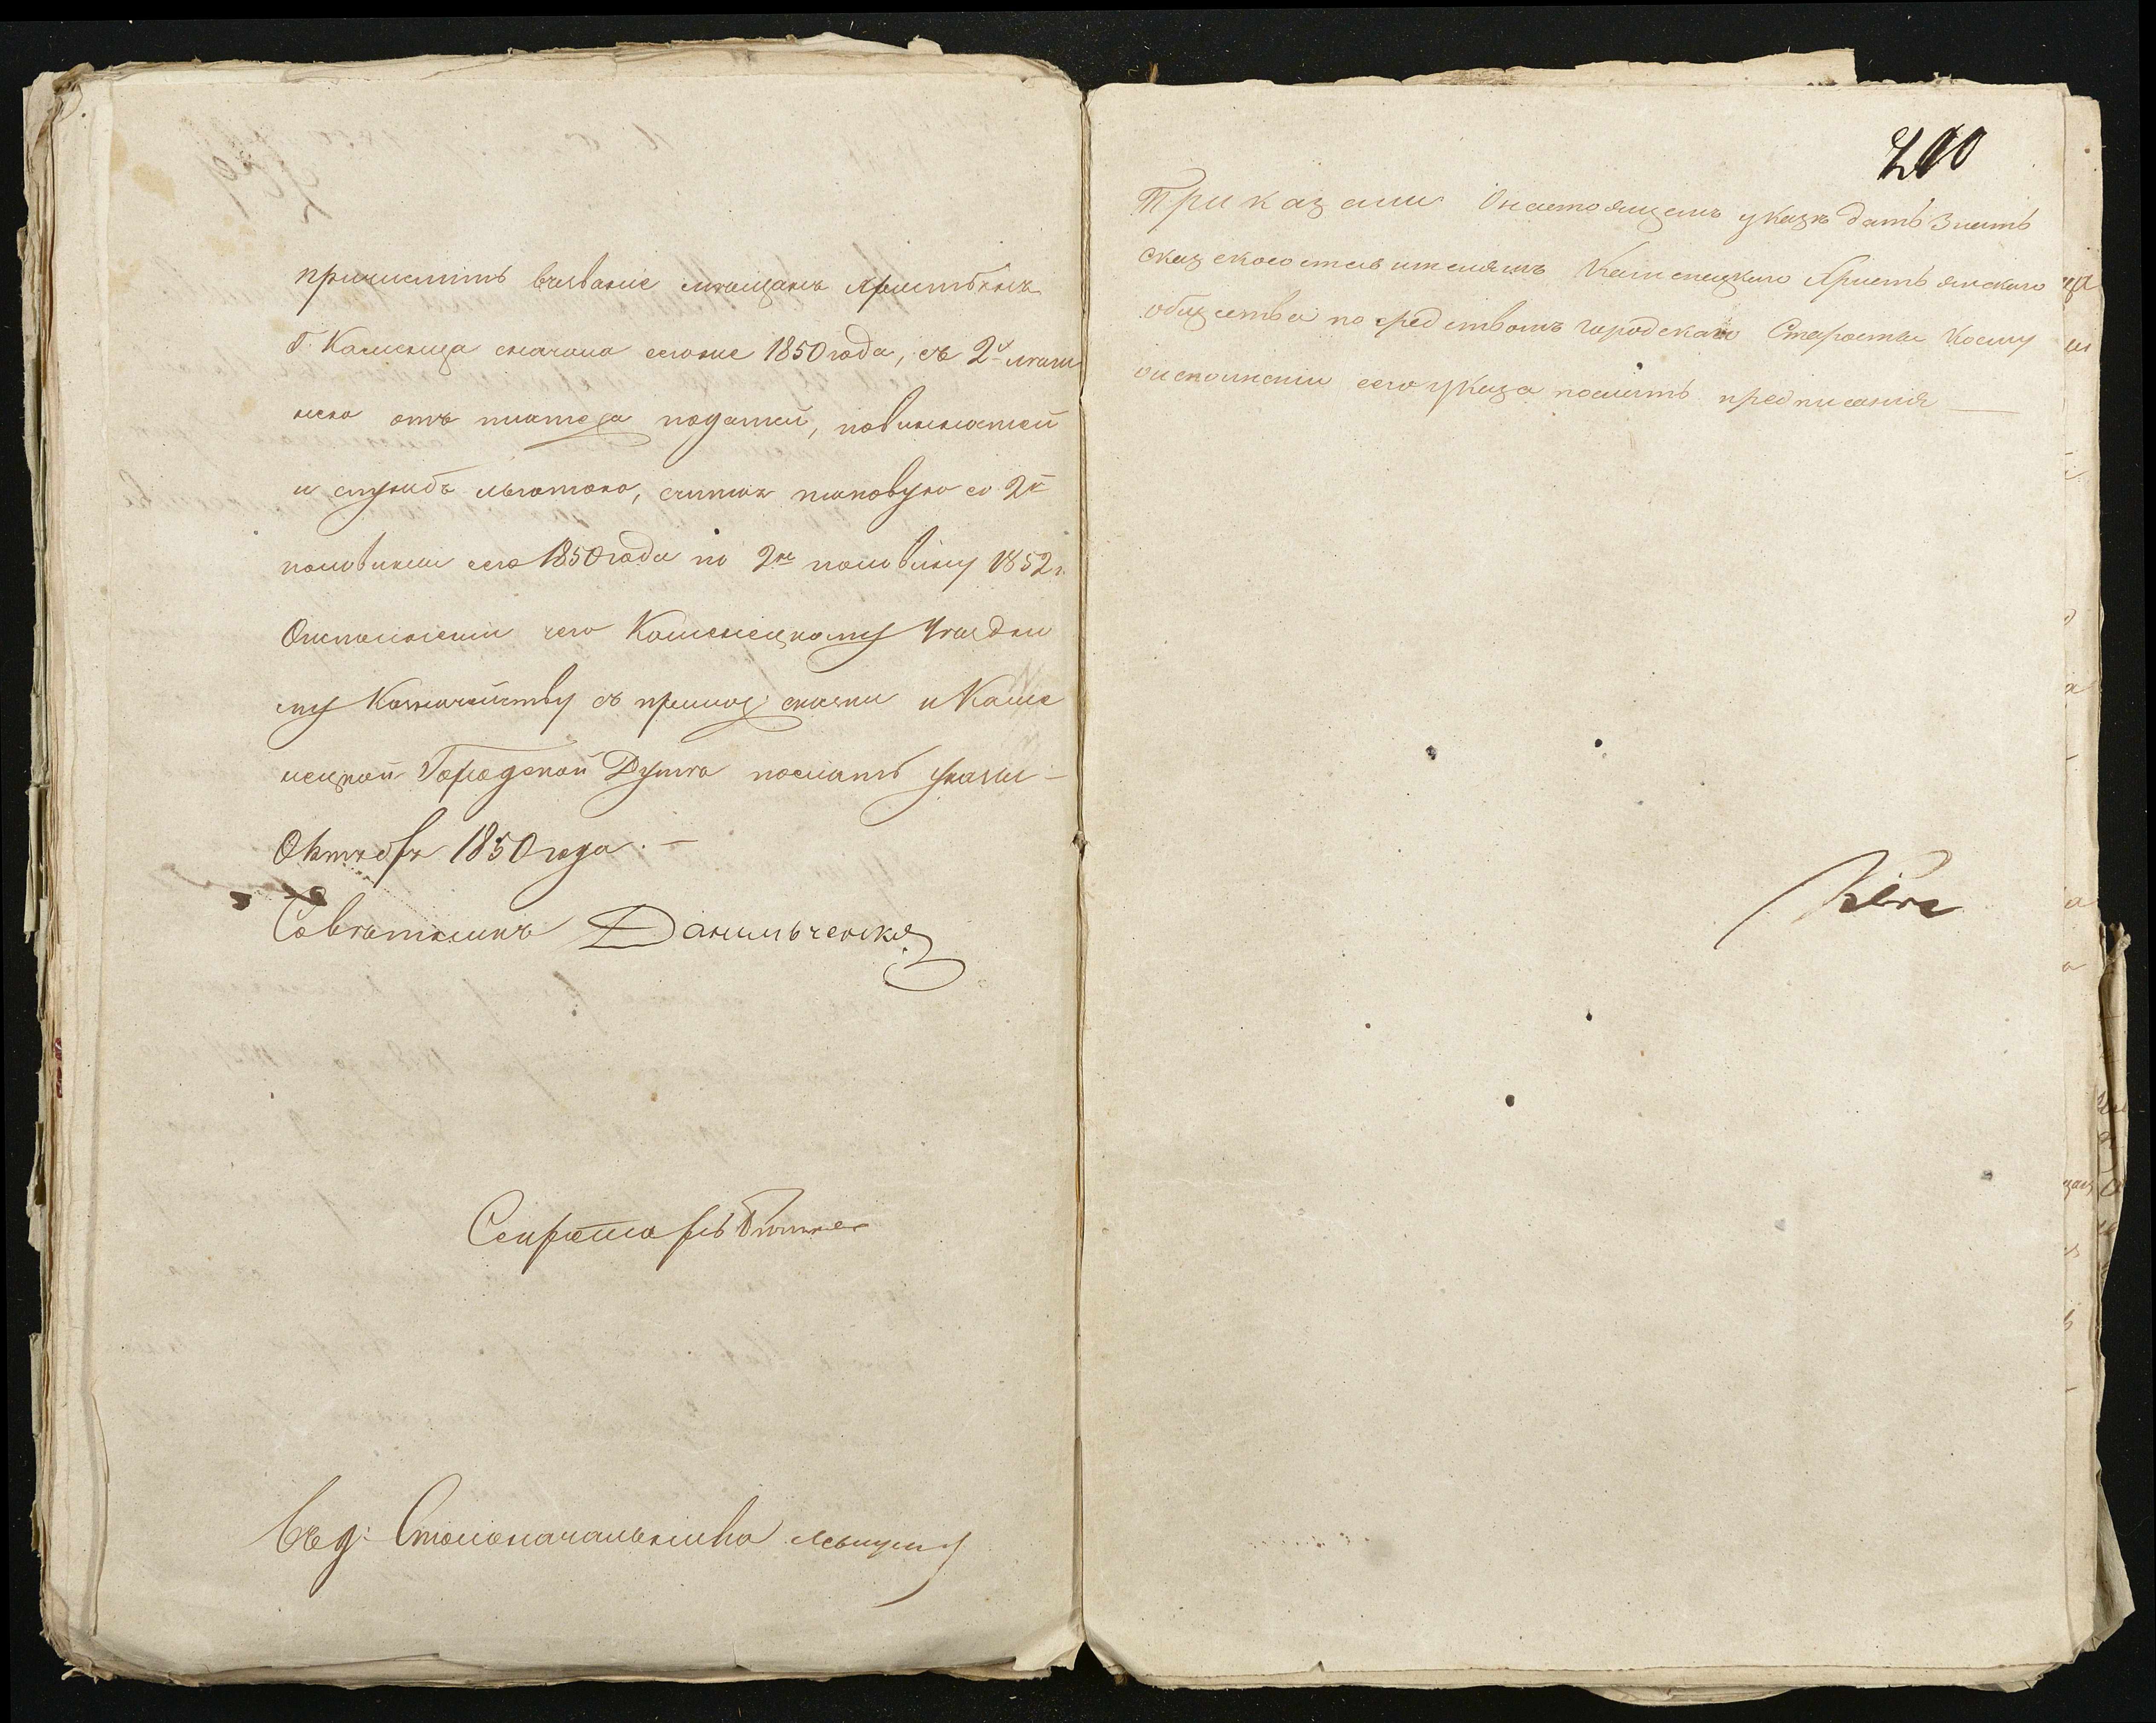 причислить въ званіе мѣщанъ христіянъ
г. Каменца сначала втораго 1850 года, съ 2х лѣтн
нею отъ платежа податей, повинностей
и службъ льготою, считая таковую со 2й
половины сего 1850 года по 2ю половину 1852 г.
О исполненіи чего Каменецкому Уѣздно
му Казначейству съ прилож: сказки и Каме
нецкой Городской Думѣ послать указы —
Октября 1850 года. —
Совѣтникъ Данильченко
Секретарь
Вѣд: Столоначальника
200
Приказали О настоящемъ указѣ дать знать
сказкосоставителямъ Каменецкаго Христьянскаго
общества посредствомъ городскаго Старосты коему
о исполненіи сего указа послать предписанія —